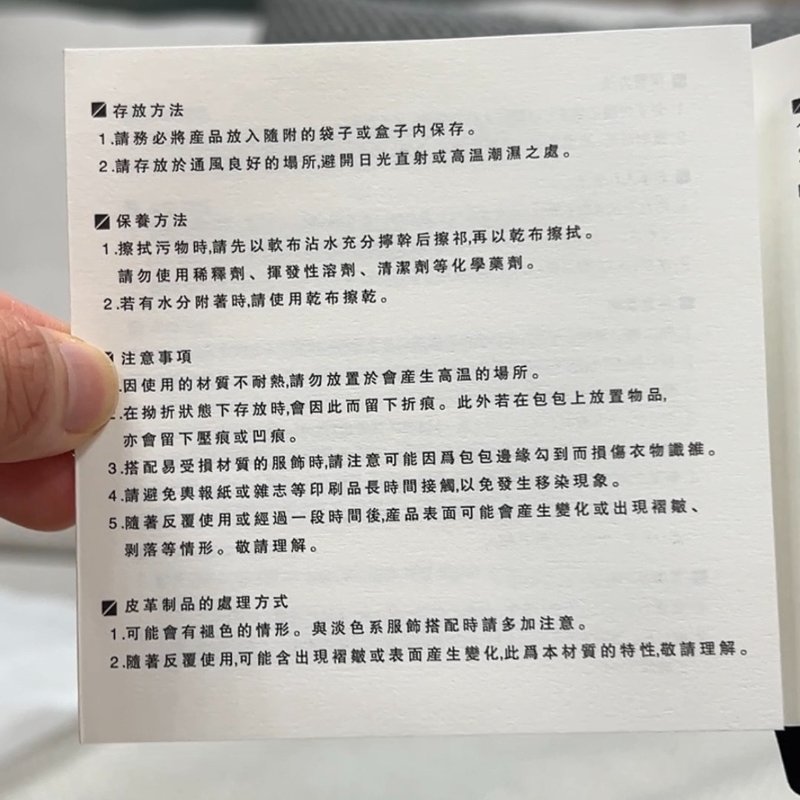 存放方法
1.請務必將産品放入隨附的袋子或盒子内保存。
2.請存放於通風良好的場所,避開日光直射或高温潮濕之處。
保養方法
1.擦拭污物時,請先以軟布沾水充分擰幹后擦祁,再以乾布擦拭。
請勿使用稀釋劑、揮發性溶劑、清潔劑等化學藥劑。
2.若有水分附著時,請使用乾布擦乾。
注意事項
.因使用的材質不耐熱,請勿放置於會産生高温的場所。
2.在拗折狀態下存放時,會因此而留下折痕。此外若在包包上放置物品,
亦會留下壓痕或凹痕。
3.搭配易受損材質的服飾時,請注意可能因爲包包邊緣勾到而損傷衣物纖維。
4.請避免輿報紙或雜志等印刷品長時間接觸,以免發生移染現象。
5.隨著反覆使用或經過一段時間後,産品表面可能會産生變化或出現褶皺、
剥落等情形。敬請理解。
皮革制品的處理方式
1.可能會有褪色的情形。與淡色系服飾搭配時請多加注意。
2.隨著反覆使用,可能含出現褶皺或表面産生變化,此爲本材質的特性,敬請理解。